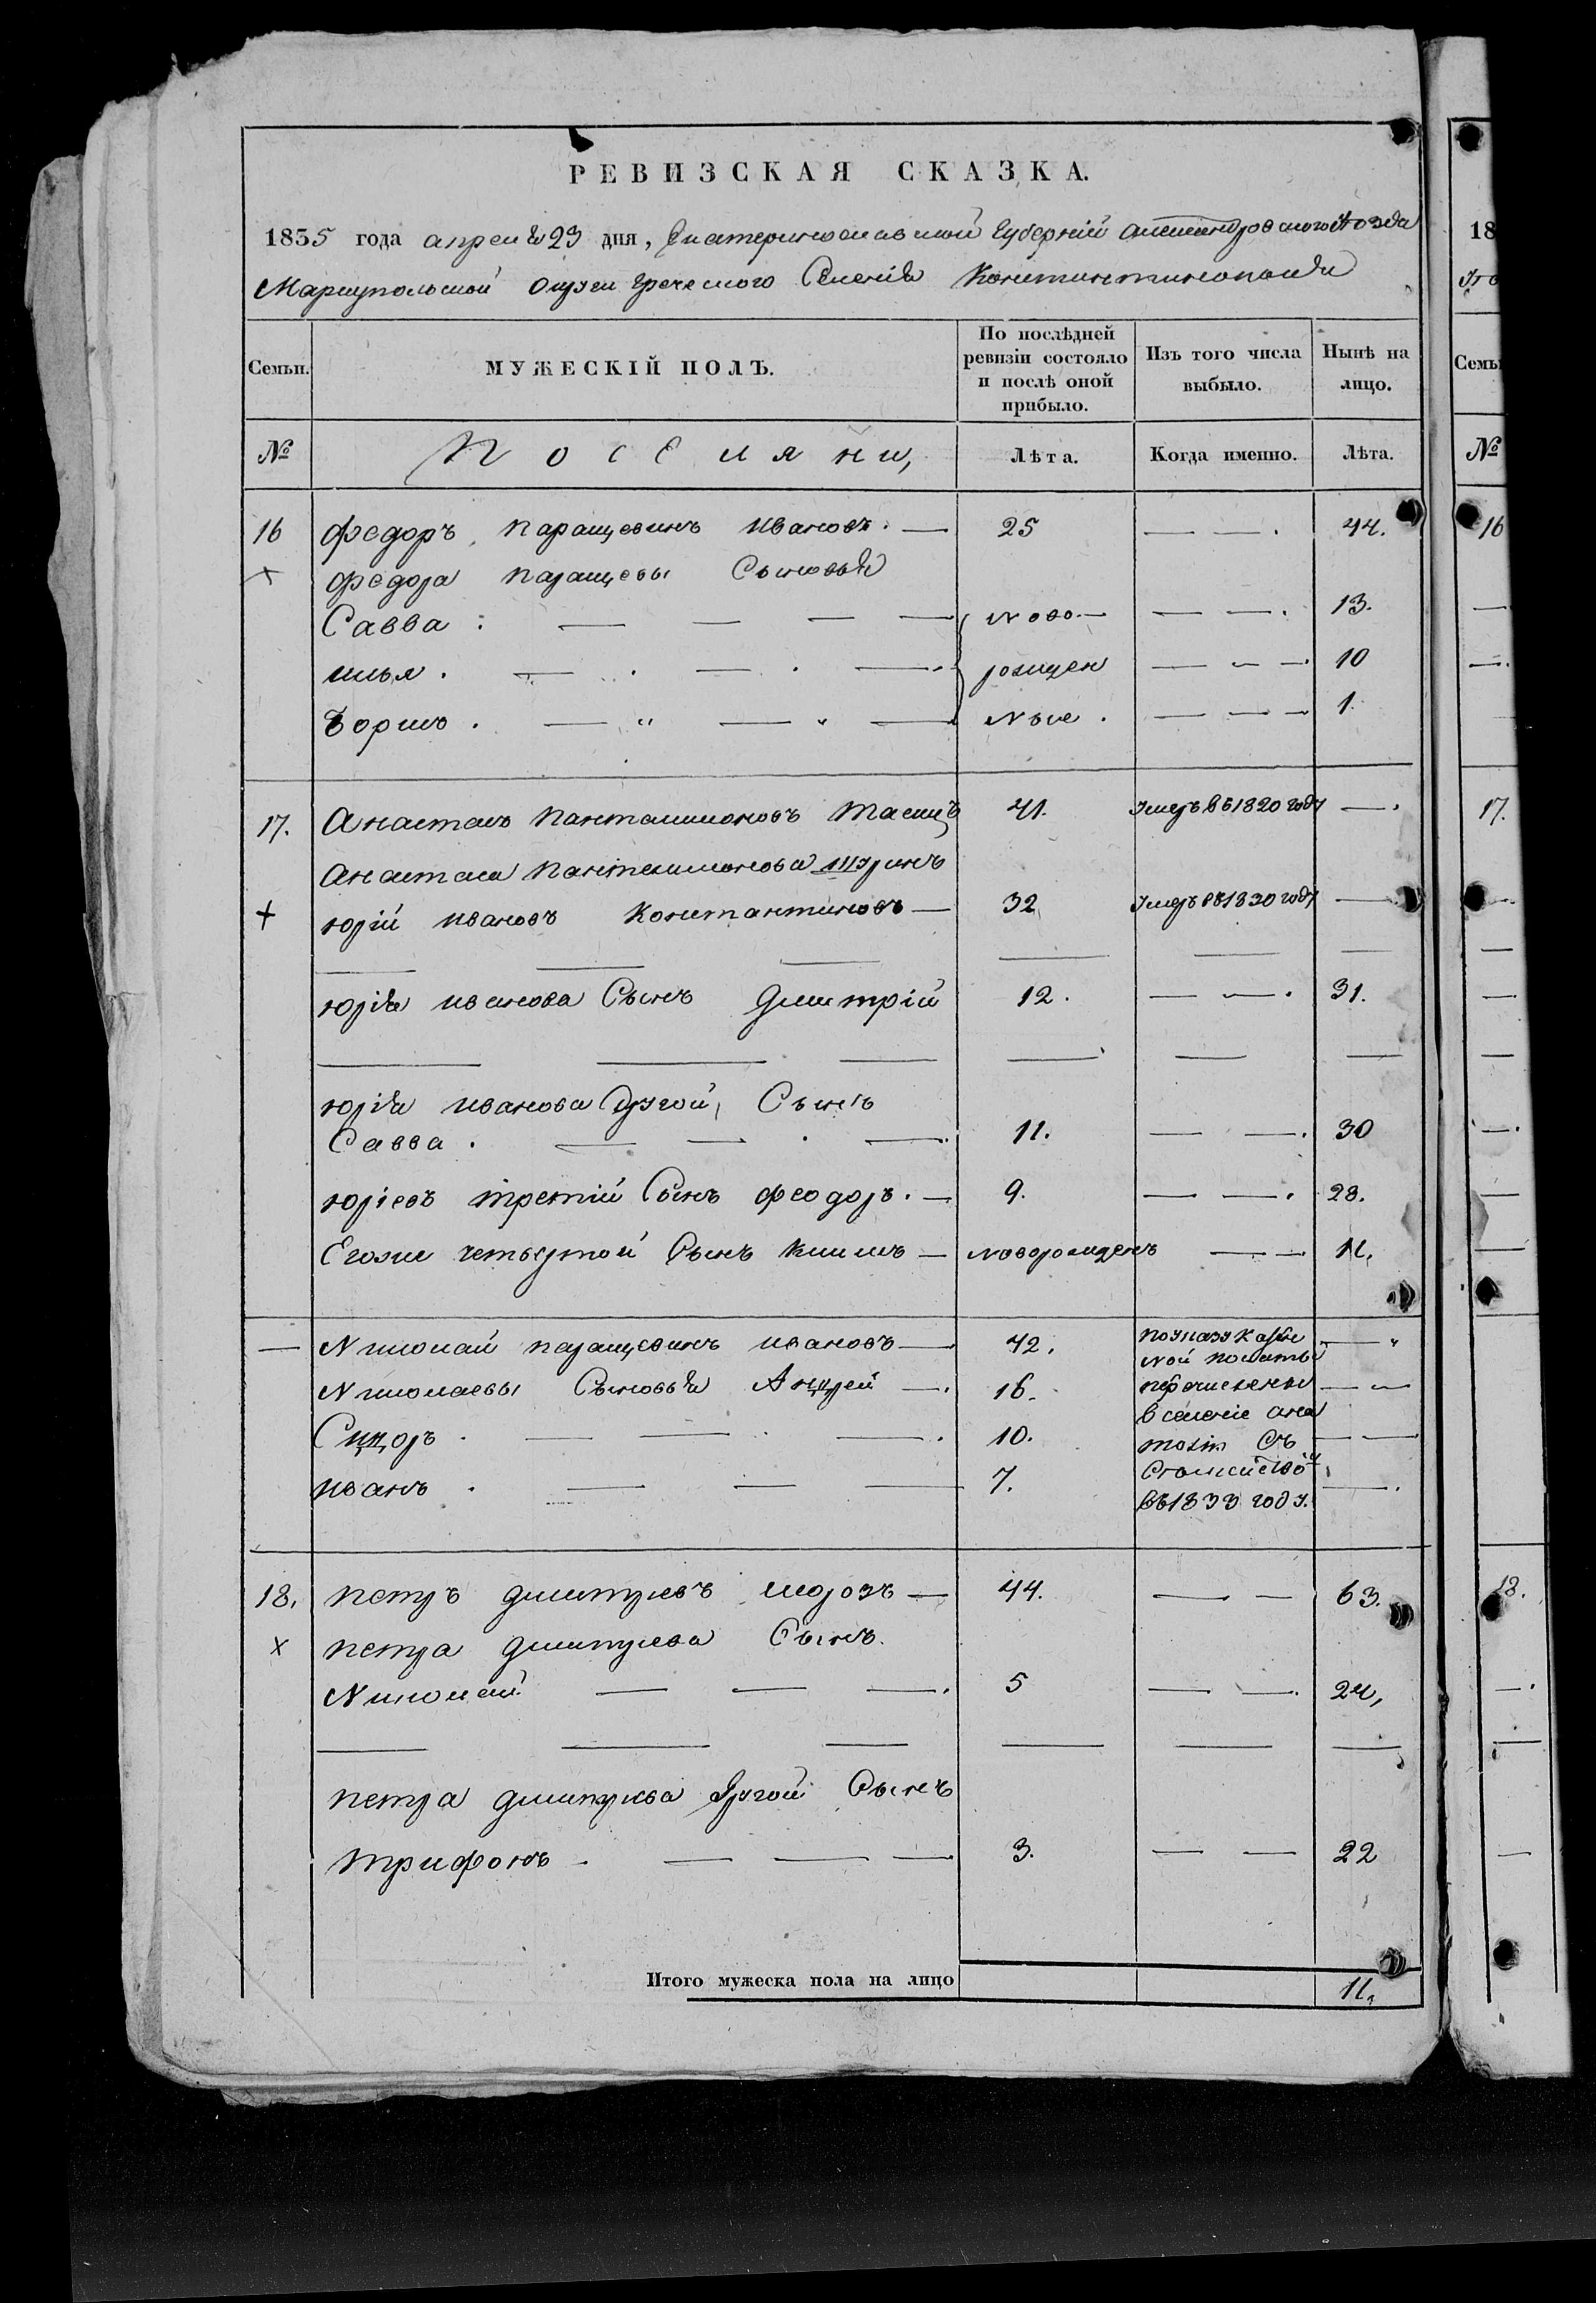 РЕВИЗСКАЯ СКАЗКА.
1835 года апреля 23 дня, Екатеринославской Губерній Александровского уезда
Мариупольской округи греческого Селенія Константинополя
Семьи. МУЖЕСКІЙ ПОЛЪ. По послѣдней ревизіи состояло и послѣ оной прибыло. Изъ того числа выбыло. Нынѣ на лицо.
№ Поселяни, Лѣта. Когда именно. Лѣта.
16 Федоръ Паращевинъ Ивановъ. — 25 — — . 44.
× Федора Паращевы Сыновья
Савва : — — — — ново- — — . 13.
Илья . — . — . — . рожден — — — . 10
Борисъ . — " — " — ные . — — — 1.
17. Анастасъ Пантелимоновъ 41. Умеръ въ 1820 году — .
Анастаса Пантелимонова Шуринъ
+ Юрій Ивановъ Константиновъ — 32 Умеръ въ 1830 году —
Юрія Иванова Сынъ Дмитрій 12. — — . 31.
Юрія Иванова Другой Сынъ
Савва . — — . — . 11. — — . 30
Юріевъ третій Сынъ Феодоръ . — 9. — — . 28.
Егоже четвертой Сынъ — новорожденъ — — 11.
— Николай Паращевинъ Ивановъ — 42. По указу Казен
ной Полаты
Николаевы Сыновья Андрей — . 16. перечислены — —
в селеніе Ана
Сидоръ . — — . — . 10. толію Съ — —
Семействомъ
Иванъ . — — — 7. въ 1833 году. — .
18. Петръ Дмитриевъ Морозъ — 44. — — 63.
× Петра Дмитриева Сынъ.
Николай — — — . 5 — — . 24,
Петра Дмитриева Другой Сынъ
Трифонъ . — — — 3. — — 22
Итого мужеска пола на лицо 11,
18
Семьи
№
16
17.
18.